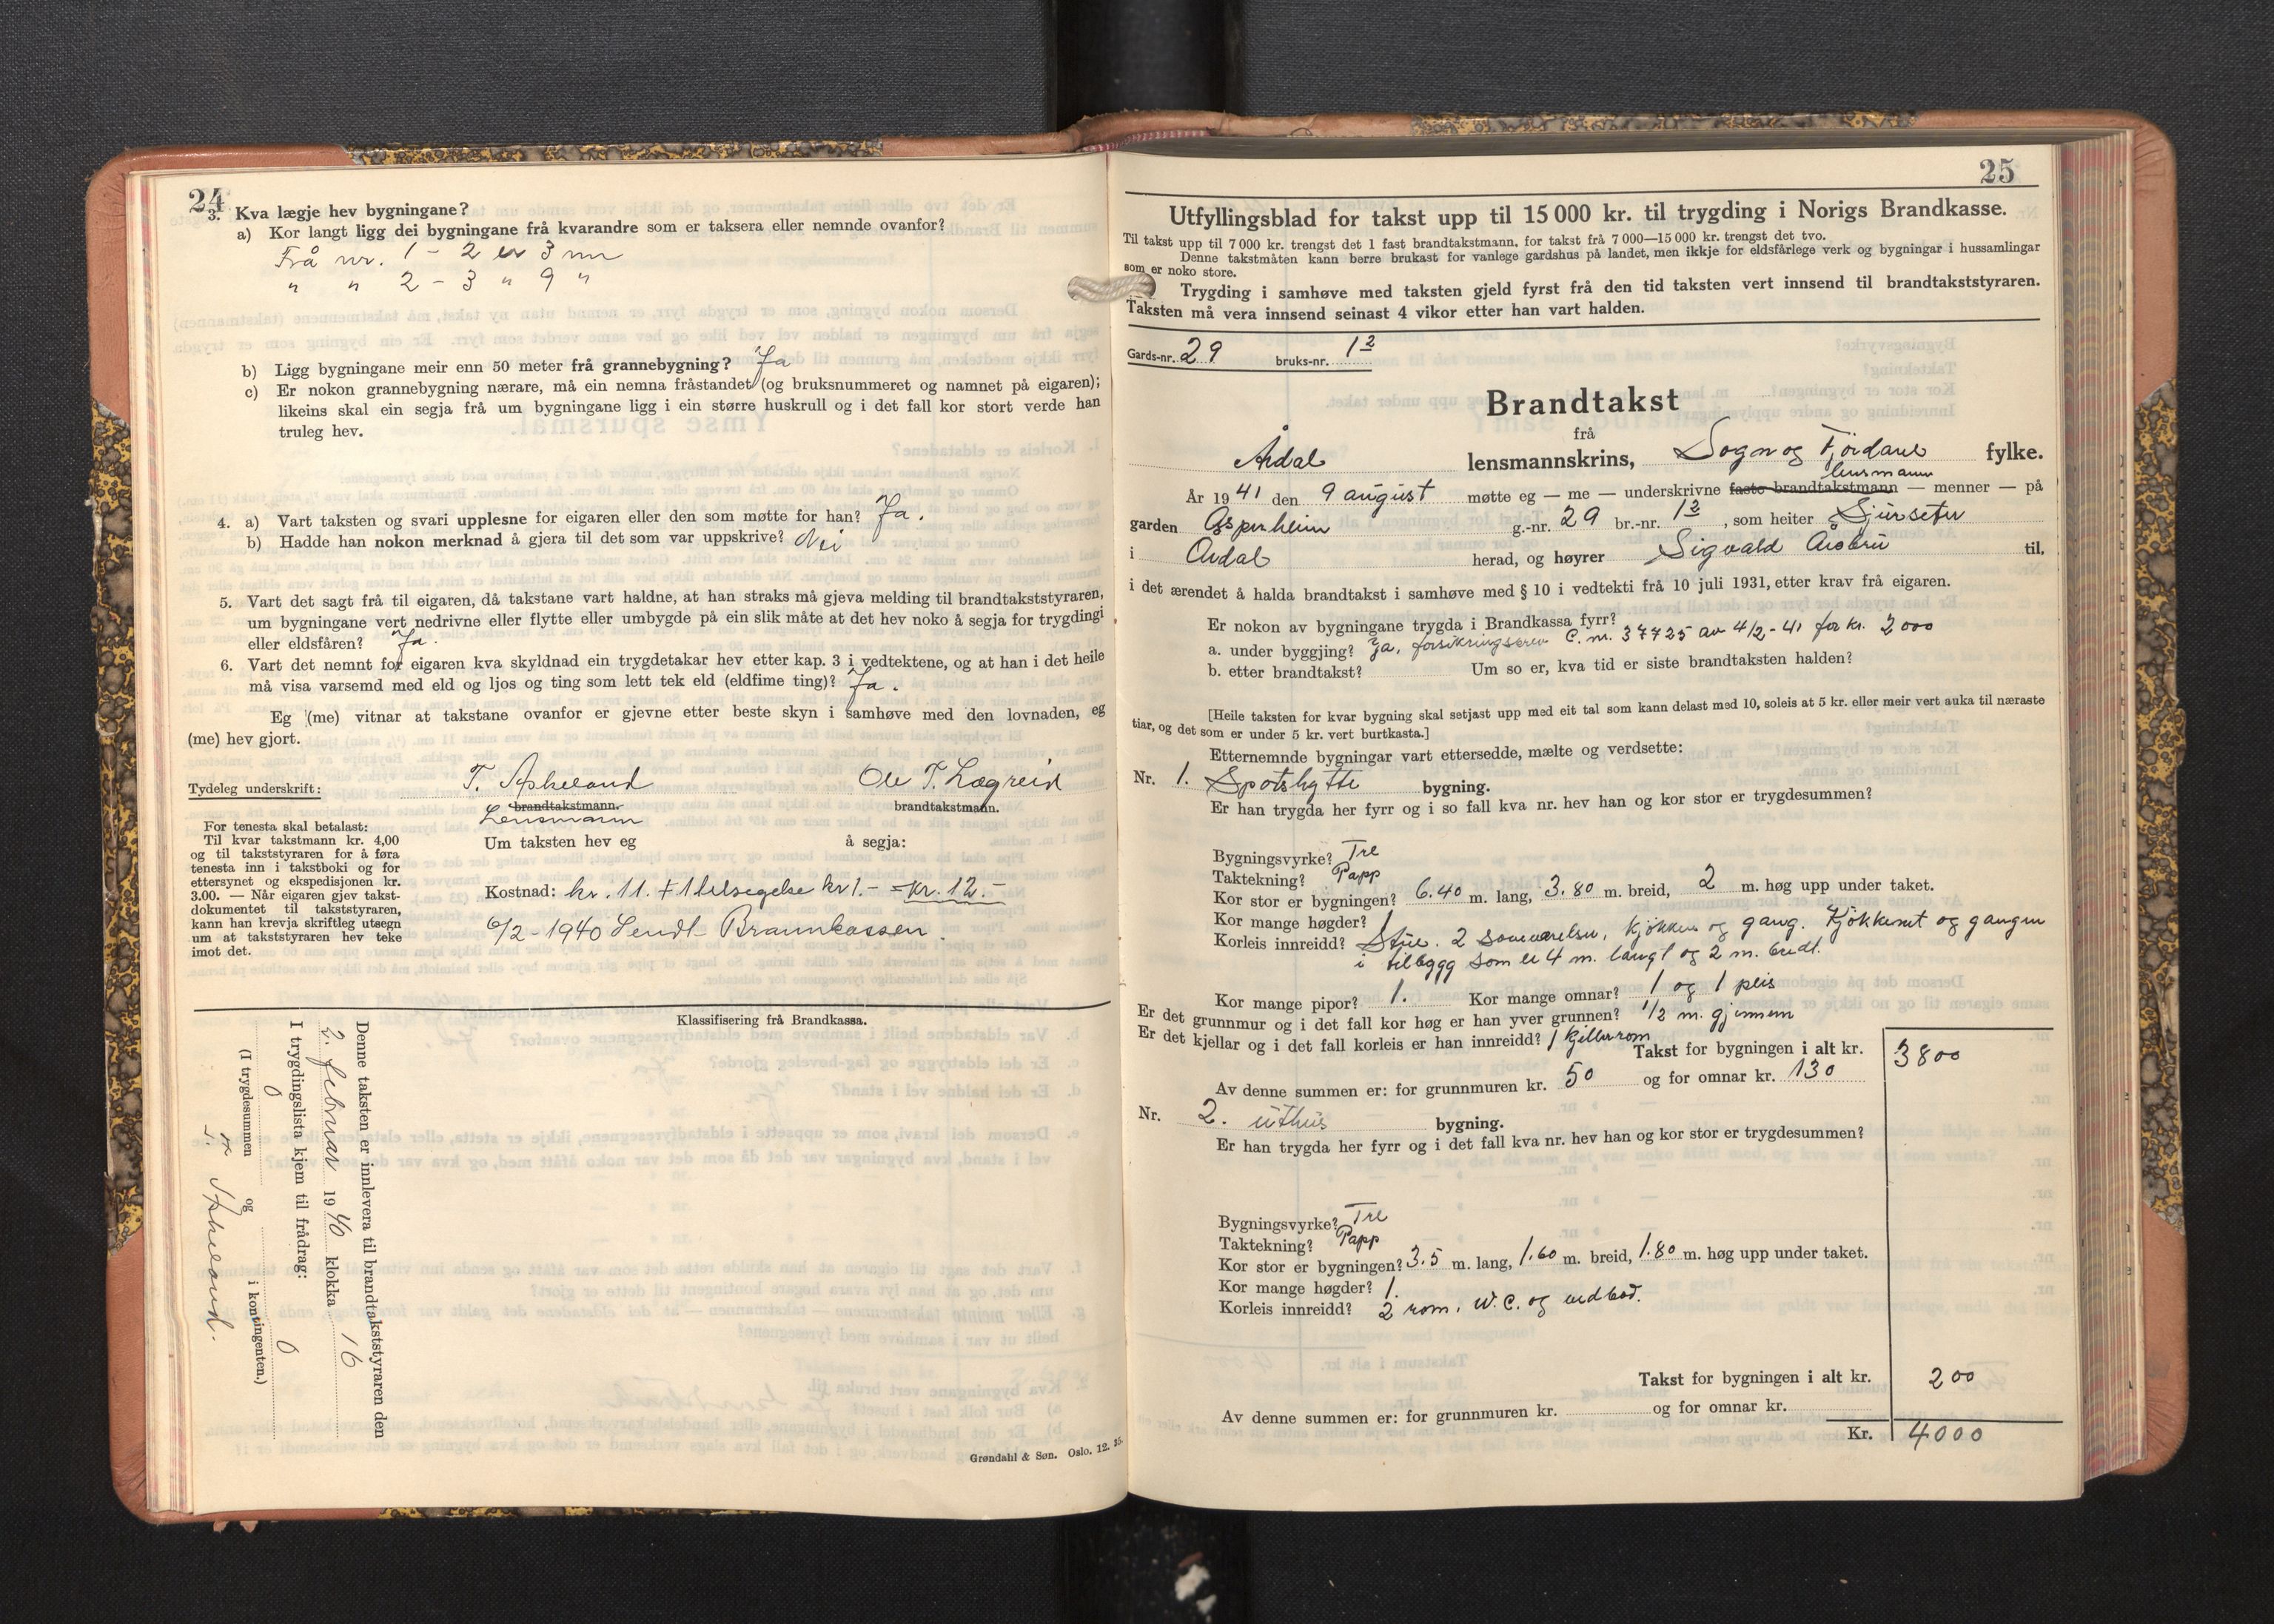 24
3. Kva lægje hev bygningane?
a) Kor langt ligg dei bygningane frå kvarandre som er taksera eller nemnde ovanfor?
Frå nr. 1 - 2 er 3 m
" " 2 - 3 " 9 "
b) Ligg bygningane meir enn 50 meter frå grannebygning? Ja
c) Er nokon grannebygning nærare, må ein nemna fråstandet (og bruksnummeret og namnet på eigaren);
likeins skal ein segja frå um bygningane ligg i ein større huskrull og i det fall kor stort verde han
truleg hev.
4. a) Vart taksten og svari upplesne for eigaren eller den som møtte for han? Ja.
b) Hadde han nokon merknad å gjera til det som var uppskrive? Nei
5. Vart det sagt frå til eigaren, då takstane vart haldne, at han straks må gjeva melding til brandtakststyraren,
um bygningane vert nedrivne eller flytte eller umbygde på ein slik måte at det hev noko å segja for trygdingi
eller eldsfåren? Ja.
6. Vart det nemnt for eigaren kva skyldnad ein trygdetakar hev etter kap. 3 i vedtektene, og at han i det heile
må visa varsemd med eld og ljos og ting som lett tek eld (eldfime ting)? Ja.
Eg (me) vitnar at takstane ovanfor er gjevne etter beste skyn i samhøve med den lovnaden, eg
(me) hev gjort.
Tydeleg underskrift: T. Apheland Ole T. Lægreid
brandtakstmann. brandtakstmann.
Lensmann
For tenesta skal betalast:
Til kvar takstmann kr. 4,00
og til takststyraren for å føra
tenesta inn i takstboki og for
ettersynet og ekspedisjonen kr.
3.00. — Når eigaren gjev takst-
dokumentet til takststyraren,
kan han krevja skriftleg utsegn
um at takststyraren hev teke
imot det.
Um taksten hev eg å segja:
Kostnad: kr. 11. + 1 tilsegelse kr 1.- = kr. 12.-
6/2-1940 Sendt Brannkassen.
Klassifisering frå Brandkassa.
Denne taksten er innlevera til brandtakststyraren den
2. februar 1940 klokka 16
I trygdingslista kjem til frådrag:
0 0
(I trygdesummen og i kontingenten.)
T. Apheland.
Grøndahl & Søn. Oslo. 12. 35.
25
Utfyllingsblad for takst upp til 15 000 kr. til trygding i Norigs Brandkasse.
Til takst upp til 7 000 kr. trengst det 1 fast brandtakstmann, for takst frå 7 000—15 000 kr. trengst det tvo.
Denne takstmåten kann berre brukast for vanlege gardshus på landet, men ikkje for eldsfårlege verk og bygningar i hussamlingar
som er noko store.
Trygding i samhøve med taksten gjeld fyrst frå den tid taksten vert innsend til brandtakststyraren.
Taksten må vera innsend seinast 4 vikor etter han vart halden.
Gards-nr. 29 bruks-nr. 12
Brandtakst
frå
Årdal lensmannskrins, Sogn og Fjordane fylke.
lensmann
År 1941 den 9 august møtte eg — me — underskrivne faste brandtakstmann — menner — på
garden Asperheim g.-nr. 29 br.-nr. 12, som heiter Sjurseter
i Årdal herad, og høyrer Sigvald til,
i det ærendet å halda brandtakst i samhøve med § 10 i vedtekti frå 10 juli 1931, etter krav frå eigaren.
Er nokon av bygningane trygda i Brandkassa fyrr?
a. under byggjing? Ja, forsikringsbrev C. nr. 37725 av 4/2-41 for kr. 2000
b. etter brandtakst? Um so er, kva tid er siste brandtaksten halden?
[Heile taksten for kvar bygning skal setjast upp med eit tal som kann delast med 10, soleis at 5 kr. eller meir vert auka til næraste
tiar, og det som er under 5 kr. vert burtkasta.]
Etternemnde bygningar vart ettersedde, mælte og verdsette:
Nr. 1. Spotshytte bygning.
Er han trygda her fyrr og i so fall kva nr. hev han og kor stor er trygdesummen?
Bygningsvyrke? Tre
Taktekning? Papp
Kor stor er bygningen? 6.40 m. lang, 3.80 m. breid, 2 m. høg upp under taket.
Kor mange høgder? 1
Korleis innreidd? Stue. 2 soveværelser, kjøkken og gang. Kjøkkenet og gangen
i tilbygg som er 4 m. langt og 2 m. bredt.
Kor mange pipor? 1. Kor mange omnar? 1 og 1 peis
Er det grunnmur og i det fall kor høg er han yver grunnen? 1/2 m. gjennem
Er det kjellar og i det fall korleis er han innreidd? 1 kjellerrom
Takst for bygningen i alt kr. 3800
Av denne summen er: for grunnmuren kr. 50 og for omnar kr. 130
Nr. 2. uthus bygning.
Er han trygda her fyrr og i det fall kva nr. hev han og kor stor er trygdesummen?
Bygningsvyrke? Tre
Taktekning? Papp
Kor stor er bygningen? 3.5 m. lang, 1.60 m. breid, 1.80 m. høg upp under taket.
Kor mange høgder? 1.
Korleis innreidd? 2 rom. W.C. og vedbod.
Takst for bygningen i alt kr. 200
Av denne summen er: for grunnmuren kr. og for omnar kr.
Kr. 4000